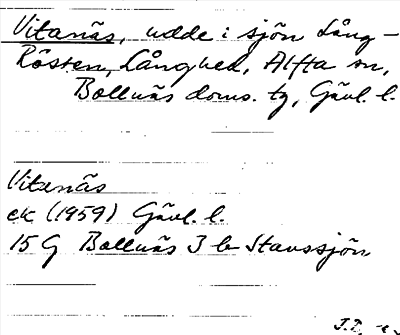 Vitanäs, udde i sjön Lång-
Rössen, Långhed, Alfta sn,
Bollnäs doms. tg, Gävl. l.
Vitanäs
ek (1959) Gävl. l.
15 G Bollnäs 3 b Stavssjön